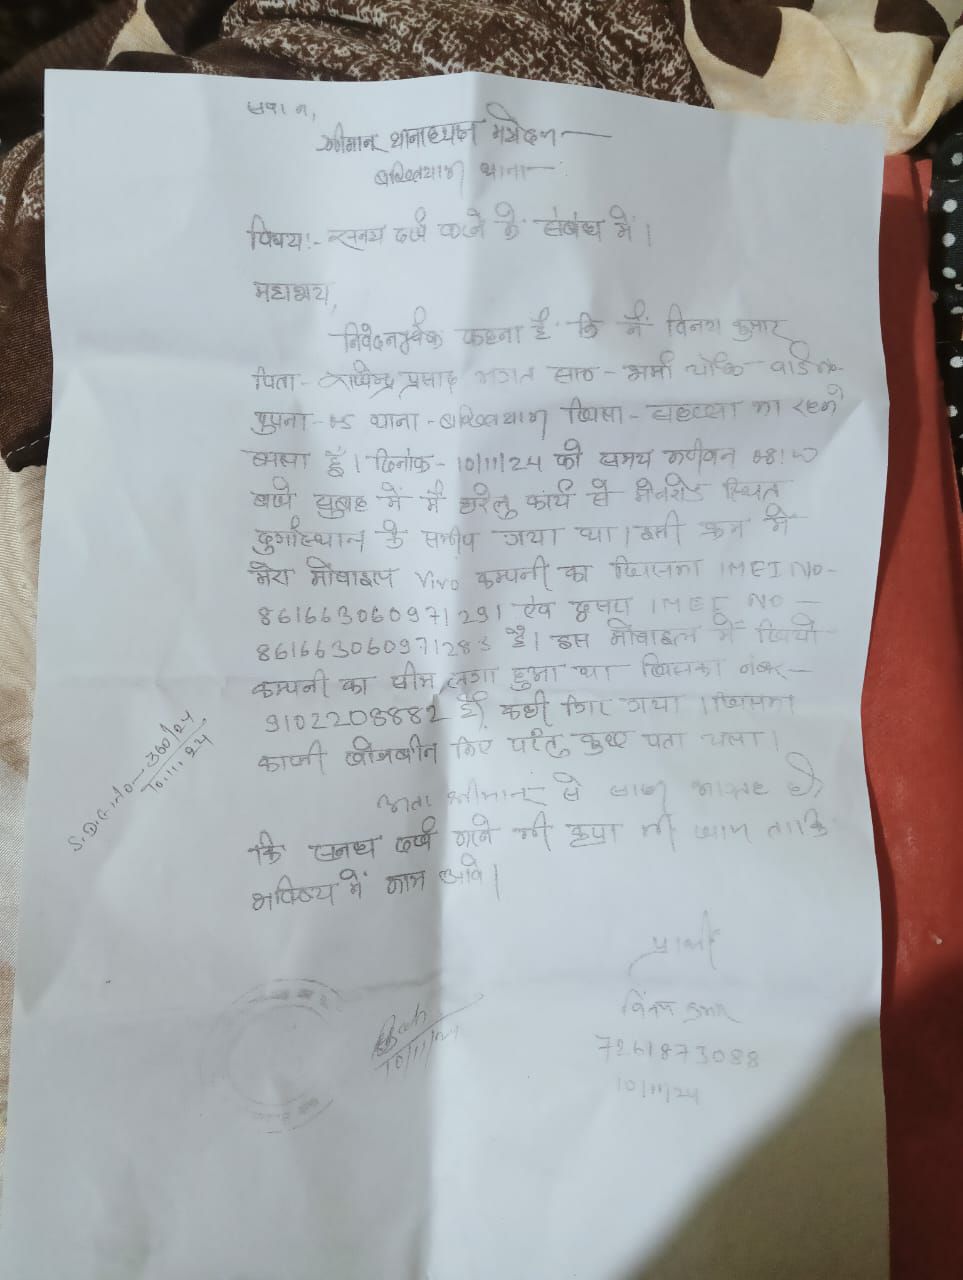 सेवा में,
श्रीमान थानाध्यक्ष महोदय
बख्तियारपुर थाना
विषय:- सनहा दर्ज करने के संबंध में।
महाशय,
निवेदनपूर्वक कहना है कि मैं विनय कुमार
पिता - प्रसाद भगत वार्ड नं-
थाना - जिला - सहरसा का रहने
वाला हूँ। दिनांक - 10/11/24 को समय करीबन
बजे सुबह में मैं घरेलु कार्य से मेनरोड स्थित
दुर्गास्थान के समीप गया था। इसी क्रम में
मेरा मोबाइल Vivo कम्पनी का जिसका IMEI NO-
861663060971291 एंव दुसरा IMEI NO -
861663060971283 है। इस मोबाइल में जियो
कम्पनी का सीम लगा हुआ था जिसका नंबर -
9102208882 है, कहीं गिर गया। जिसका
काफी खोजबीन किए परंतु कुछ पता चला।
अतः श्रीमान् से आग्रह है,
कि सनहा दर्ज करने की कृपा की जाय ताकि
भविष्य में काम आवे।
S.D.E. NO - 360/24
10.11.24
प्रार्थी
विनय कुमार
7261873088
10/11/24
10/11/24